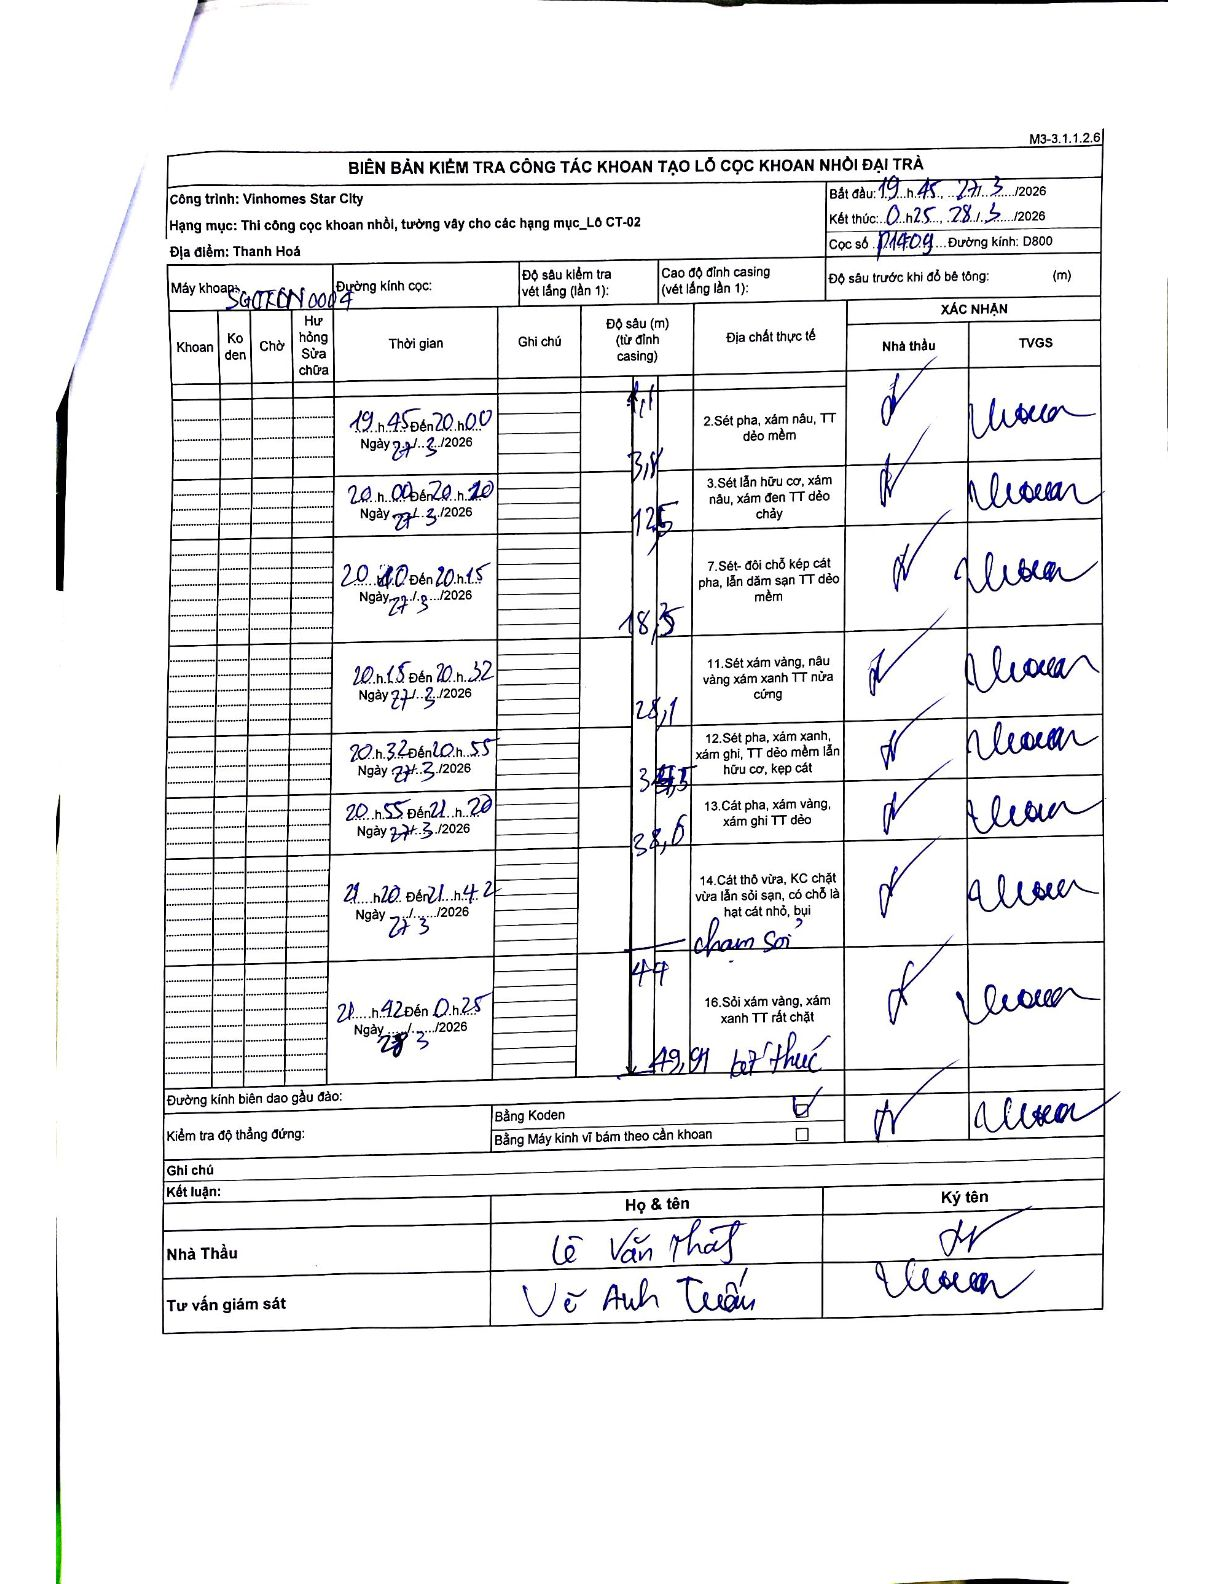 M3-3.1.1.2.6
BIÊN BẢN KIỂM TRA CÔNG TÁC KHOAN TẠO LỖ CỌC KHOAN NHỒI ĐẠI TRÀ
Công trình: Vinhomes Star City
Hạng mục: Thi công cọc khoan nhồi, tường vây cho các hạng mục_Lô CT-02
Địa điểm: Thanh Hoá
Bắt đầu: 19 h 45, 27/ 3 /2026
Kết thúc: 0 h 25, 28 / 3 /2026
Cọc số P1409 Đường kính: D800
Máy khoan: Đường kính cọc:
Độ sâu kiểm tra vét lắng (lần 1):
Cao độ đỉnh casing (vét lắng lần 1):
Độ sâu trước khi đổ bê tông: (m)
Khoan Ko den Chờ Hư hỏng Sửa chữa Thời gian Ghi chú Độ sâu (m) (từ đỉnh casing) Địa chất thực tế XÁC NHẬN
Nhà thầu TVGS
19 h 45 Đến 20 h 00
Ngày 27/ 3 /2026
2.Sét pha, xám nâu, TT dẻo mềm
20 h 00 Đến 20 h 10
Ngày 27/ 3 /2026
3.Sét lẫn hữu cơ, xám nâu, xám đen TT dẻo chảy
12,5
20 h 10 Đến 20 h 15
Ngày 27/ 3 /2026
7.Sét- đôi chỗ kép cát pha, lẫn dăm sạn TT dẻo mềm
18,5
20 h 15 Đến 20 h 32
Ngày 27/ 3 /2026
11.Sét xám vàng, nâu vàng xám xanh TT nửa cứng
28,1
20 h 32 Đến 20 h 55
Ngày 27/ 3 /2026
12.Sét pha, xám xanh, xám ghi, TT dẻo mềm lẫn hữu cơ, kẹp cát
20 h 55 Đến 21 h 20
Ngày 27/ 3 /2026
13.Cát pha, xám vàng, xám ghi TT dẻo
38,6
21 h 20 Đến 21 h 42
Ngày 27/ 3 /2026
14.Cát thô vừa, KC chặt vừa lẫn sỏi sạn, có chỗ là hạt cát nhỏ, bụi
chạm sỏi
44
21 h 42 Đến 0 h 25
Ngày 28/ 3 /2026
16.Sỏi xám vàng, xám xanh TT rất chặt
49,91 kết thúc
Đường kính biên dao gầu đào:
Kiểm tra độ thẳng đứng:
Bằng Koden
Bằng Máy kinh vĩ bám theo cần khoan
Ghi chú
Kết luận:
Họ & tên Ký tên
Nhà Thầu Lê Văn Nhất
Tư vấn giám sát Võ Anh Tuấn